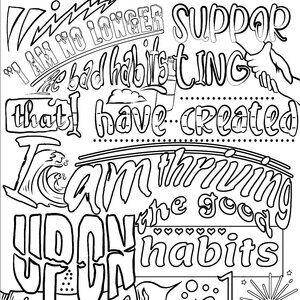 "I AM NO LONGER SUPPOR
the bad habits TING
that I have created
I am thriving
UPON the good
habits